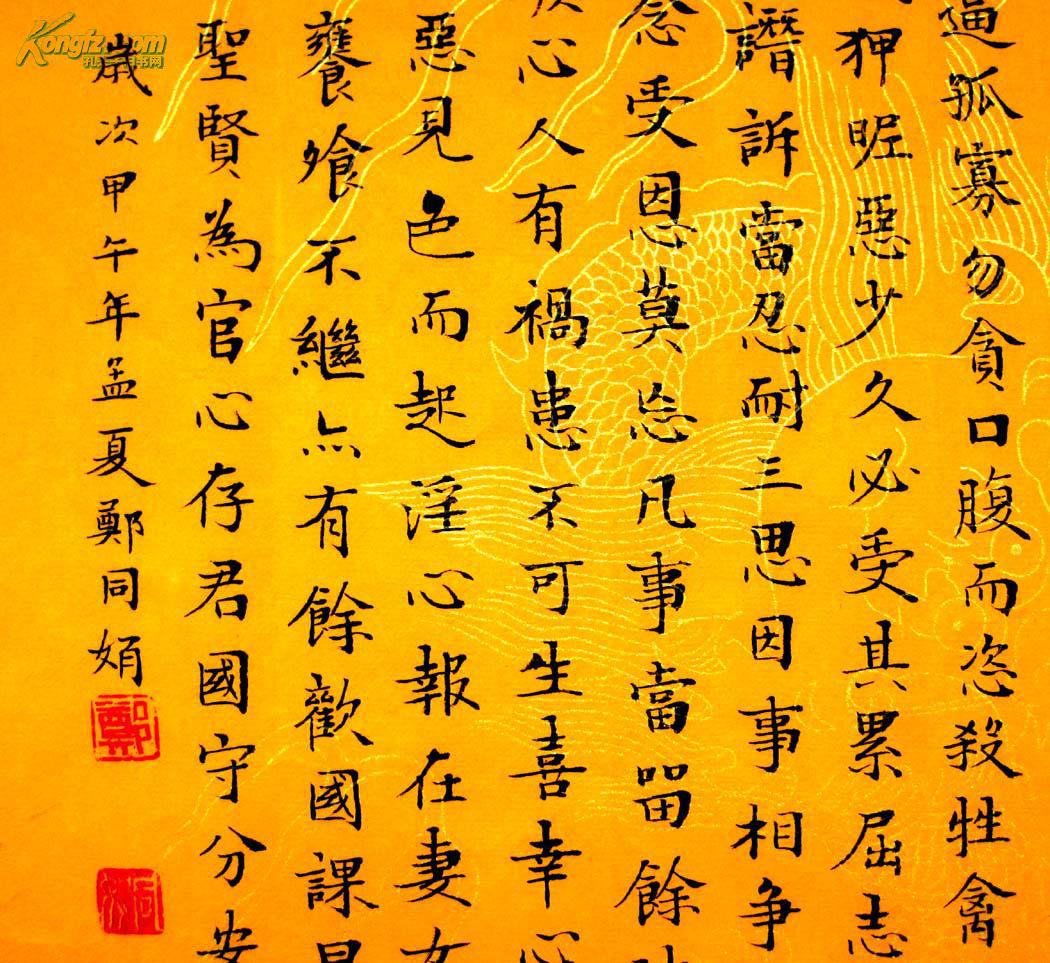 逼孤寡勿貪口腹而恣殺牲禽
狎昵惡少久必受其累屈志
譖訴當忍耐三思因事相争
念受恩莫忘凡事當留餘
心人有禍患不可生喜幸心
惡見色而起淫心報在妻女
饔飧不繼亦有餘歡國課早
聖賢為官心存君國守分安
歲次甲午年孟夏鄭同娟
鄭
Kongfz.com
孔夫子旧书网